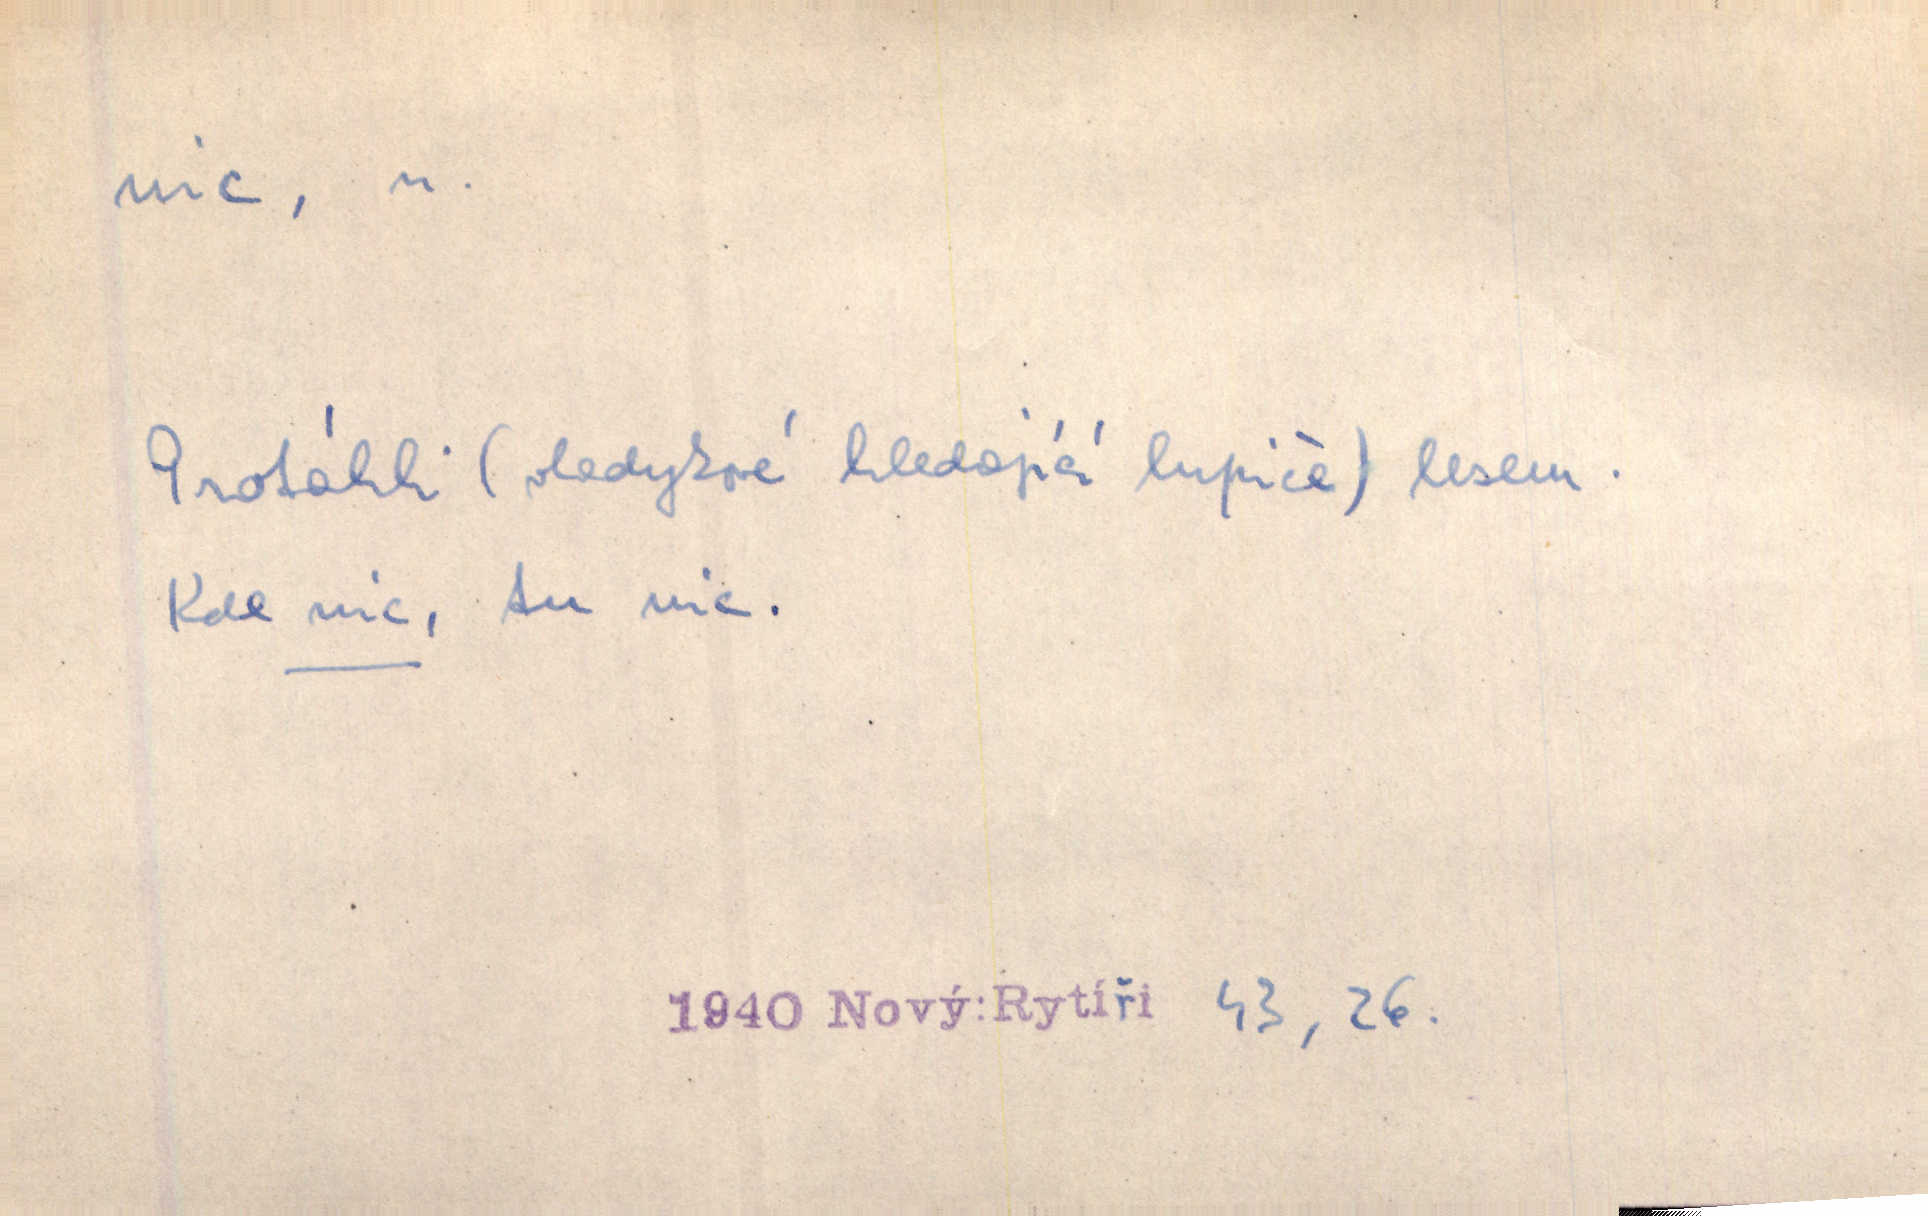 nic, n.
Protáhli (vladykové hledající lupiče) lesem.
Kde nic, tu nic.
1940 Nový:Rytíři 43, 26.